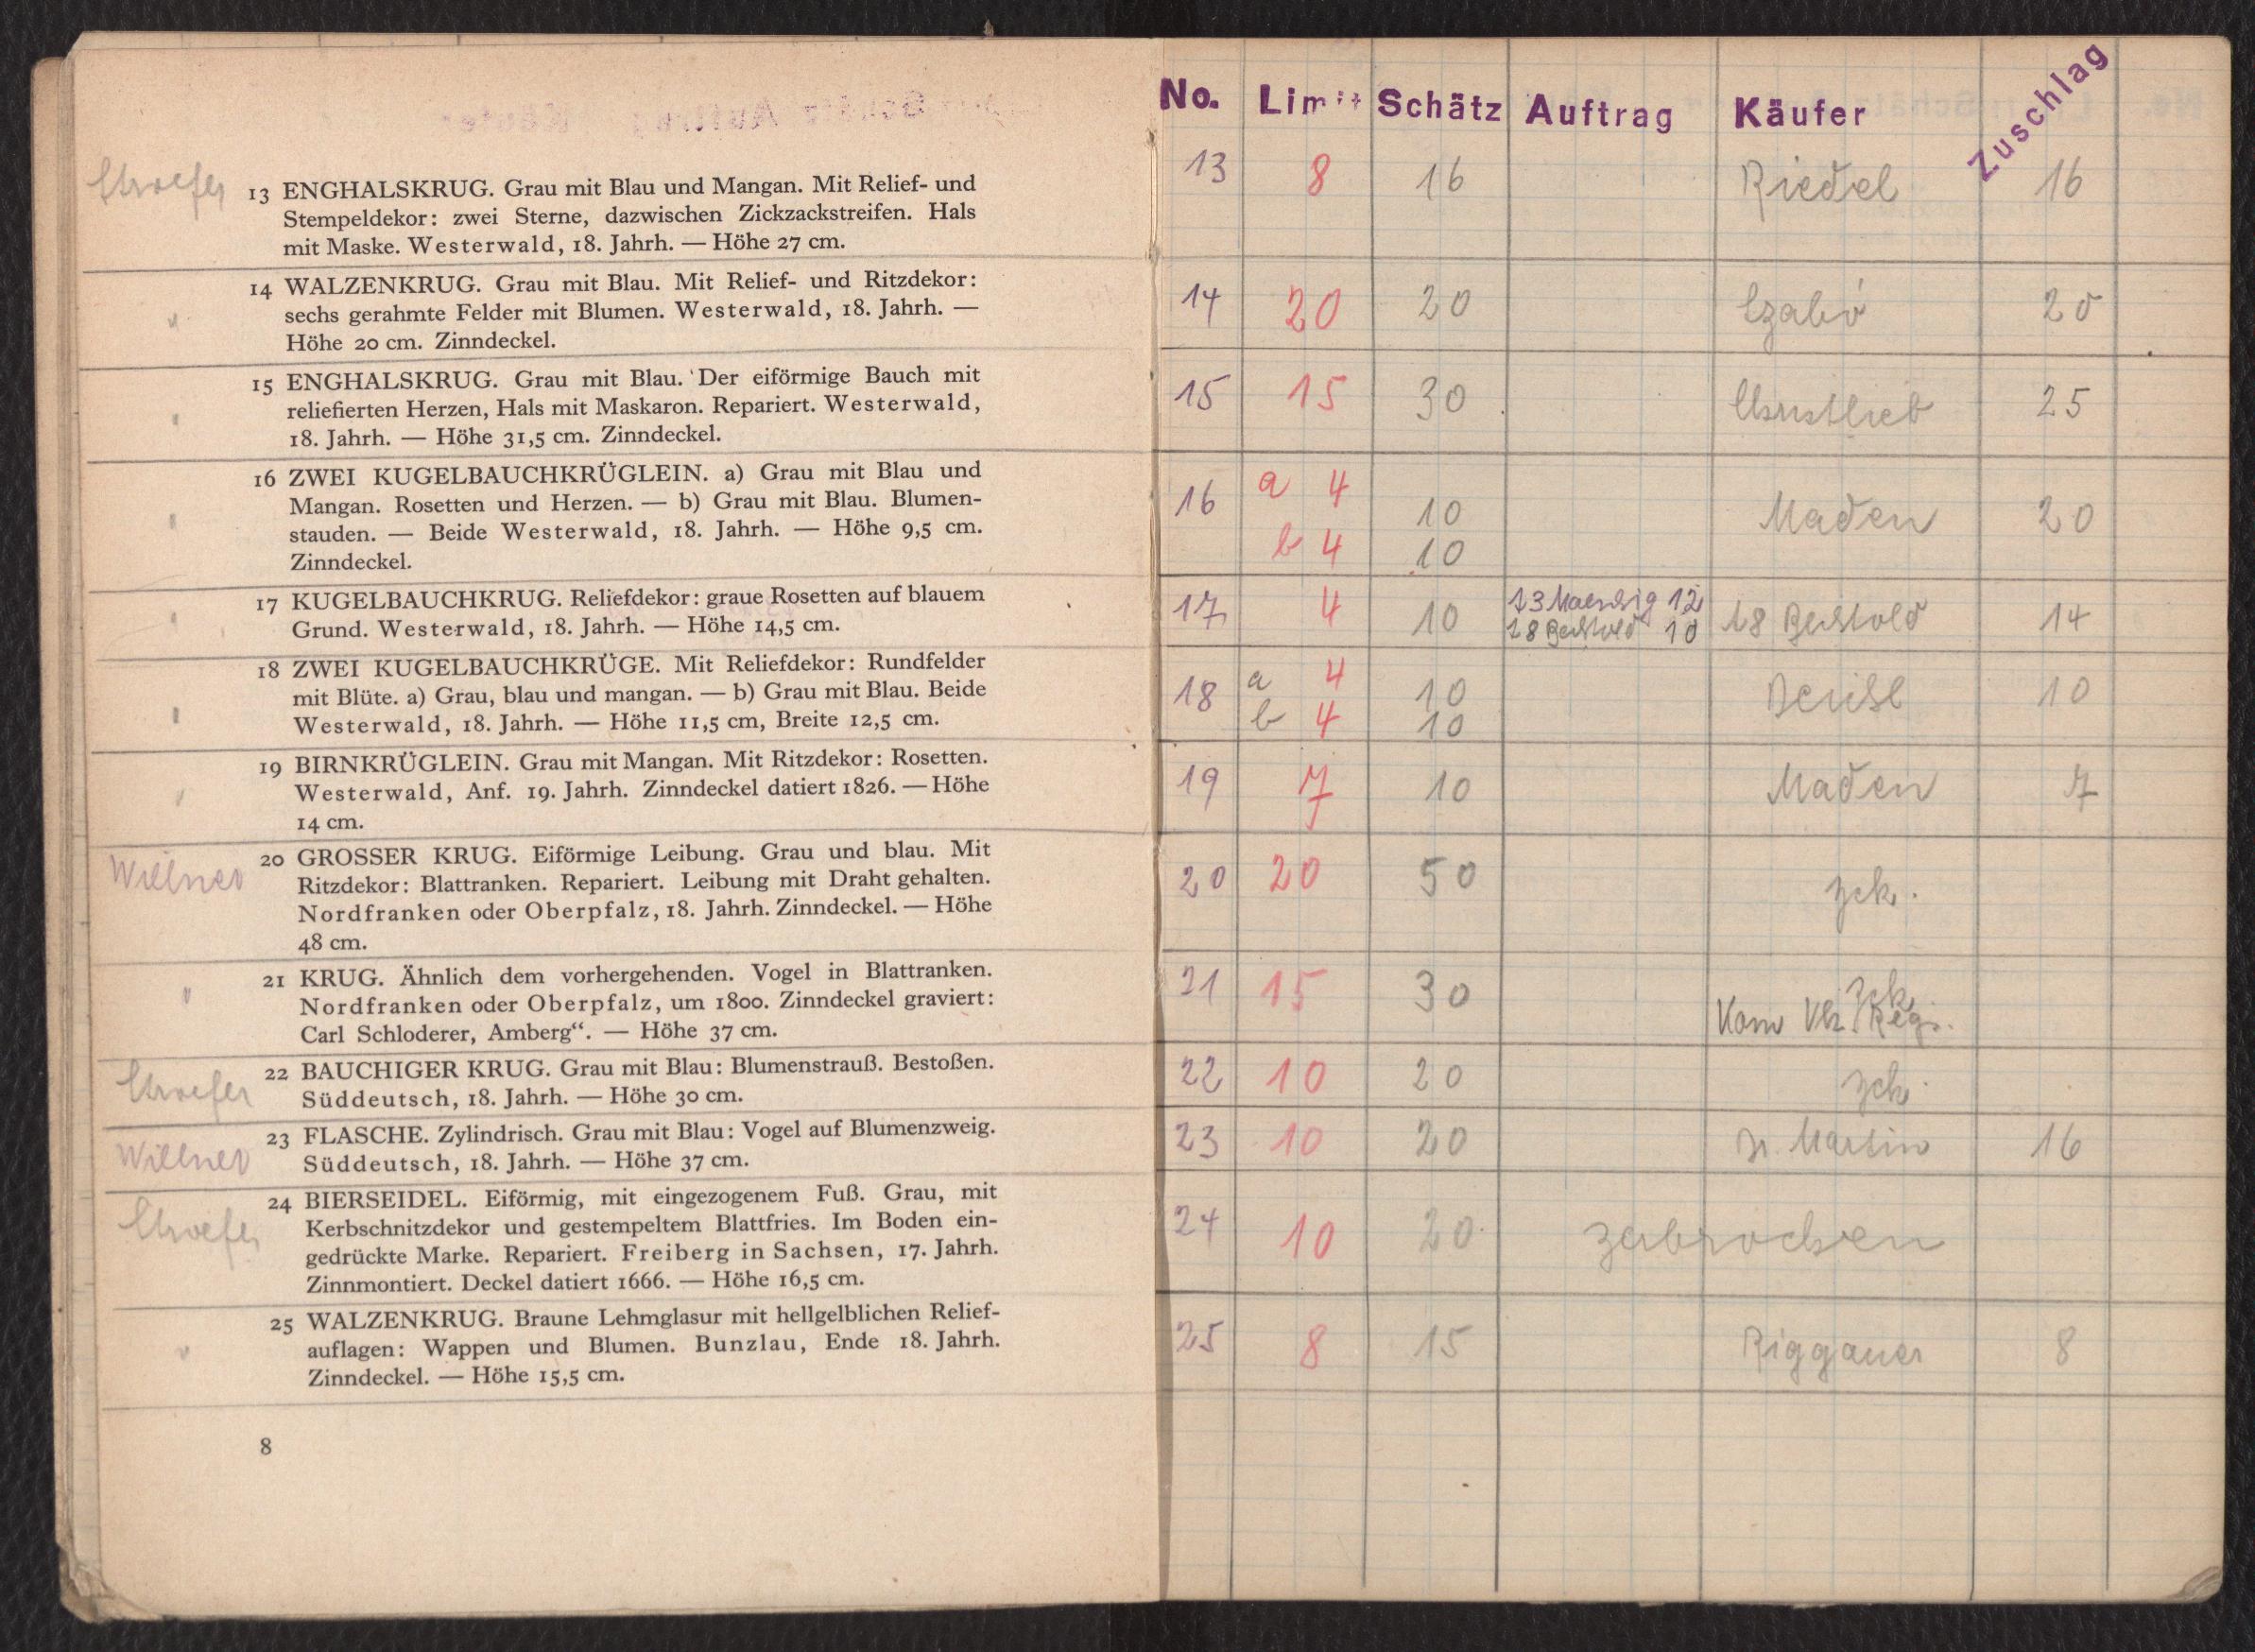 13 ENGHALSKRUG. Grau mit Blau und Mangan. Mit Relief- und
Stempeldekor: zwei Sterne, dazwischen Zickzackstreifen. Hals
mit Maske. Westerwald, 18. Jahrh. — Höhe 27 cm.
" 14 WALZENKRUG. Grau mit Blau. Mit Relief- und Ritzdekor:
sechs gerahmte Felder mit Blumen. Westerwald, 18. Jahrh. —
Höhe 20 cm. Zinndeckel.
" 15 ENGHALSKRUG. Grau mit Blau. Der eiförmige Bauch mit
reliefierten Herzen, Hals mit Maskaron. Repariert. Westerwald,
18. Jahrh. — Höhe 31,5 cm. Zinndeckel.
" 16 ZWEI KUGELBAUCHKRÜGLEIN. a) Grau mit Blau und
Mangan. Rosetten und Herzen. — b) Grau mit Blau. Blumen-
stauden. — Beide Westerwald, 18. Jahrh. — Höhe 9,5 cm.
Zinndeckel.
" 17 KUGELBAUCHKRUG. Reliefdekor: graue Rosetten auf blauem
Grund. Westerwald, 18. Jahrh. — Höhe 14,5 cm.
" 18 ZWEI KUGELBAUCHKRÜGE. Mit Reliefdekor: Rundfelder
mit Blüte. a) Grau, blau und mangan. — b) Grau mit Blau. Beide
Westerwald, 18. Jahrh. — Höhe 11,5 cm, Breite 12,5 cm.
" 19 BIRNKRÜGLEIN. Grau mit Mangan. Mit Ritzdekor: Rosetten.
Westerwald, Anf. 19. Jahrh. Zinndeckel datiert 1826. — Höhe
14 cm.
Willner 20 GROSSER KRUG. Eiförmige Leibung. Grau und blau. Mit
Ritzdekor: Blattranken. Repariert. Leibung mit Draht gehalten.
Nordfranken oder Oberpfalz, 18. Jahrh. Zinndeckel. — Höhe
48 cm.
" 21 KRUG. Ähnlich dem vorhergehenden. Vogel in Blattranken.
Nordfranken oder Oberpfalz, um 1800. Zinndeckel graviert:
Carl Schloderer, Amberg“. — Höhe 37 cm.
22 BAUCHIGER KRUG. Grau mit Blau: Blumenstrauß. Bestoßen.
Süddeutsch, 18. Jahrh. — Höhe 30 cm.
Willner 23 FLASCHE. Zylindrisch. Grau mit Blau: Vogel auf Blumenzweig.
Süddeutsch, 18. Jahrh. — Höhe 37 cm.
24 BIERSEIDEL. Eiförmig, mit eingezogenem Fuß. Grau, mit
Kerbschnitzdekor und gestempeltem Blattfries. Im Boden ein-
gedrückte Marke. Repariert. Freiberg in Sachsen, 17. Jahrh.
Zinnmontiert. Deckel datiert 1666. — Höhe 16,5 cm.
" 25 WALZENKRUG. Braune Lehmglasur mit hellgelblichen Relief-
auflagen: Wappen und Blumen. Bunzlau, Ende 18. Jahrh.
Zinndeckel. — Höhe 15,5 cm.
8
No. Limit Schätz Auftrag Käufer Zuschlag
13 8 16 Riedel 16
14 20 20 Szabó 20
15 15 30 25
16 a 4 10 Maden 20
b 4 10
17 4 10 13 12 18 Berthold 14
18 Berthold 10
18 a 4 10 10
b 4 10
19 7 10 Maden 7
20 20 50 zck.
21 15 30 zck.
22 10 20 zck.
23 10 20 Martin 16
24 10 20 zerbrochen
25 8 15 Riggauer 8